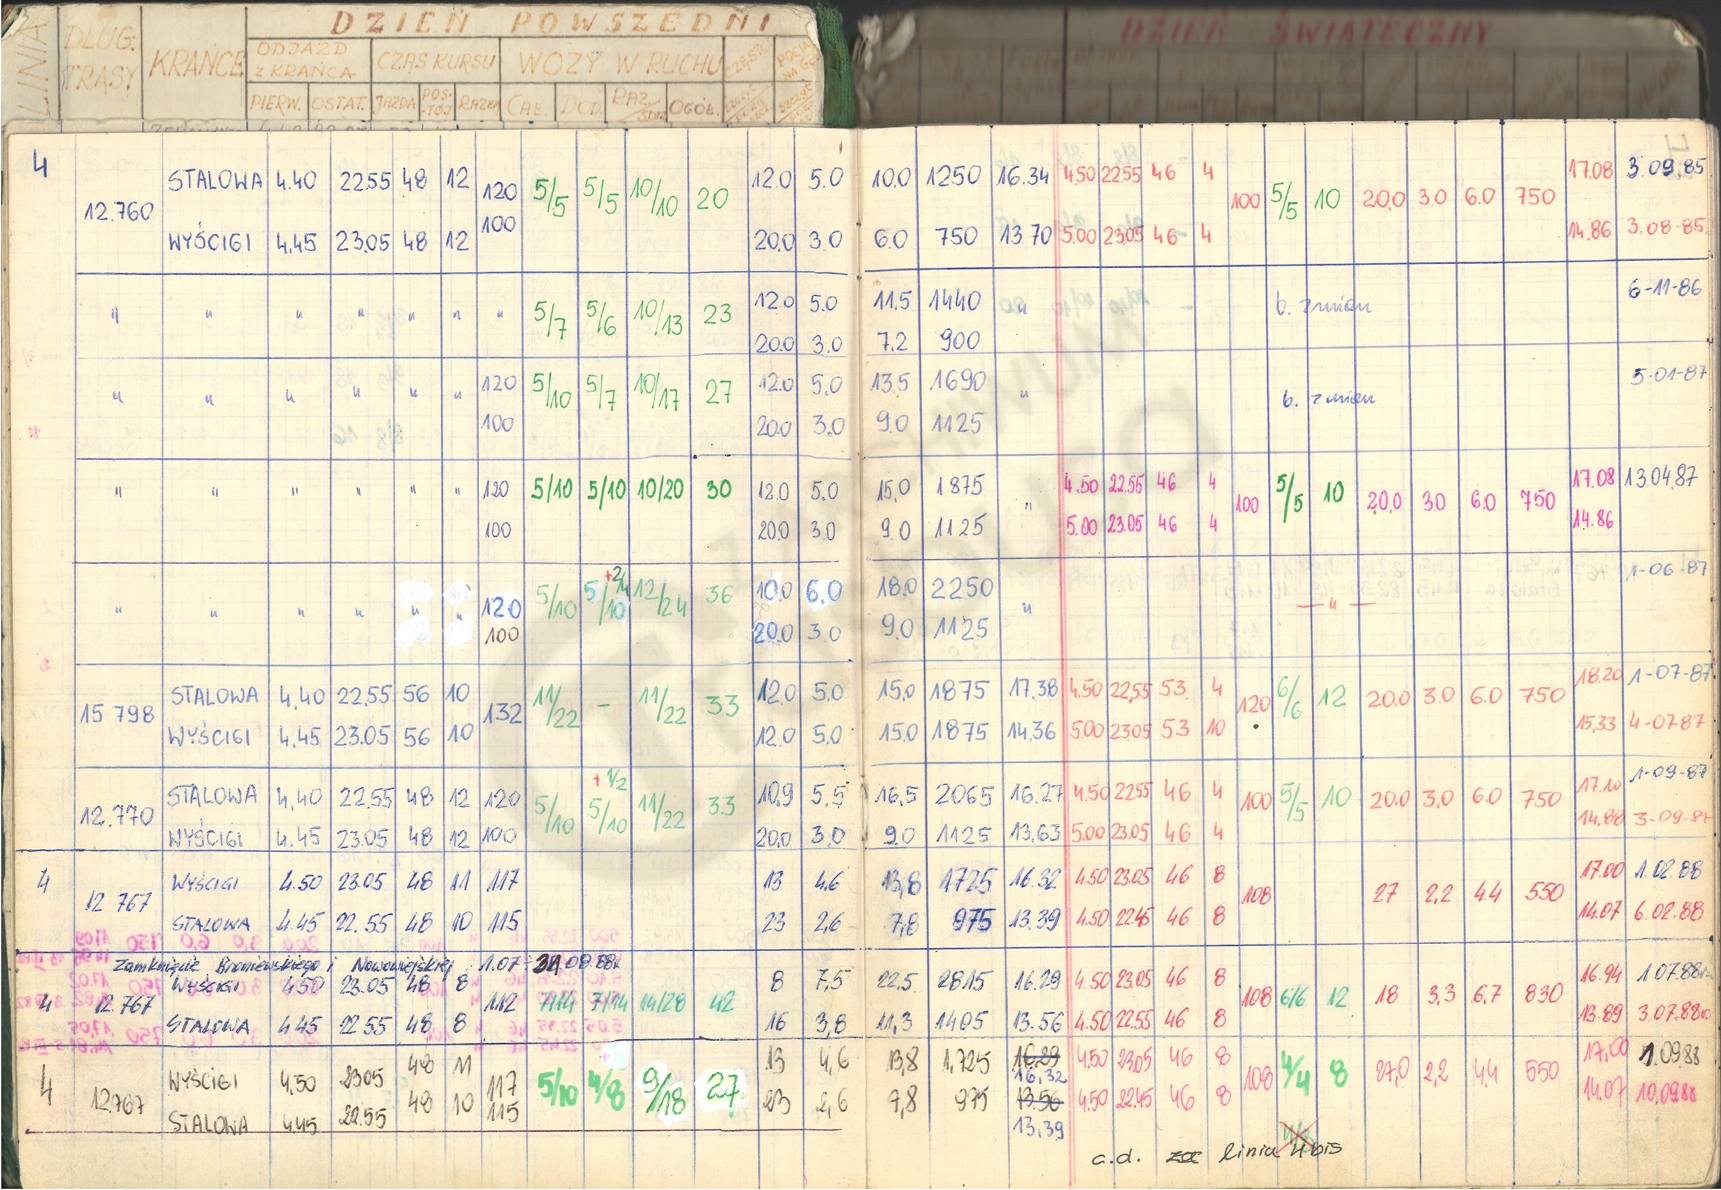 DZIEŃ POWSZEDNI
DZIEŃ ŚWIĄTECZNY
LINIA DŁUG. TRASY KRAŃCE ODJAZD Z KRAŃCA CZAS KURSU WOZY W RUCHU
PIERW. OSTAT. JAZDA POS-TÓJ RAZEM CAŁ. DOD. RAZ. OGÓŁ.
4 STALOWA 4.40 22.55 48 12 120 5/5 5/5 10/10 20 12.0 5.0 10.0 1250 16.34 4.50 22.55 46 4 100 5/5 10 20.0 3.0 6.0 750 17.08 3.09.85
12.760 100
WYŚCIGI 4.45 23.05 48 12 20.0 3.0 6.0 750 13.70 5.00 23.05 46 4 14.86 3.08.85
" " " " " " " 5/7 5/6 10/13 23 12.0 5.0 11.5 1440 " b. zmian 6-11-86
20.0 3.0 7.2 900
" " " " " " 120 5/10 5/7 10/17 27 12.0 5.0 13.5 1690 " b. zmian 5-01-87
100 20.0 3.0 9.0 1125
" " " " " " 120 5/10 5/10 10/20 30 12.0 5.0 15.0 1875 " 4.50 22.55 46 4 100 5/5 10 20.0 3.0 6.0 750 17.08 13.04.87
100 20.0 3.0 9.0 1125 5.00 23.05 46 4 14.86
" " " " " " 120 5/10 5/10 +2/4 12/24 36 10.0 6.0 18.0 2250 " — " — 1-06-87
100 20.0 3.0 9.0 1125
STALOWA 4.40 22.55 56 10 12.0 5.0 15.0 1875 17.38 4.50 22.55 53 4 18.20 1-07-87
15 798 132 11/22 – 11/22 33 120 6/6 12 20.0 3.0 6.0 750
WYŚCIGI 4.45 23.05 56 10 12.0 5.0 15.0 1875 14.36 5.00 23.05 53 10 15.33 4-07-87
STALOWA 4.40 22.55 48 12 120 5/10 5/10 +1/2 11/22 33 10.9 5.5 16.5 2065 16.27 4.50 22.55 46 4 100 5/5 10 20.0 3.0 6.0 750 17.10 1-09-87
12.770
WYŚCIGI 4.45 23.05 48 12 100 20.0 3.0 9.0 1125 13.63 5.00 23.05 46 4 14.88
4 WYŚCIGI 4.50 23.05 48 11 117 13 4.6 13,8 1725 16.32 4.50 23.05 46 8 17.00 1.02.88
12 767 108 27 2,2 4.4 550
STALOWA 4.45 22.55 48 10 115 23 2.6 7,8 975 13.39 4.50 22.45 46 8 14.07 6.02.88
Zamknięcie Broniewskiego i Nowowiejskiej 1.07-31.08.88r
WYŚCIGI 4.50 23.05 48 8 8 7,5 22,5 2815 16.29 4.50 23.05 46 8 16.94 1.07.88
4 12.767 112 7/14 7/14 14/28 42 108 6/6 12 18 3,3 6,7 830
STALOWA 4.45 22.55 48 8 16 3,8 11,3 1405 13.56 4.50 22.55 46 8 13.89 3.07.88
WYŚCIGI 4.50 23.05 48 11 117 5/10 4/8 9/18 27 13 4,6 13,8 1.725 16.29 16,32 4.50 23.05 46 8 108 4/4 8 27,0 2,2 4,4 550 17,00 1.09.88
4 12.767
STALOWA 4.45 22.55 48 10 115 23 2,6 7,8 975 13.56 13,39 4.50 22.45 46 8 14.07 10.09.88
c.d. linia 4 bis